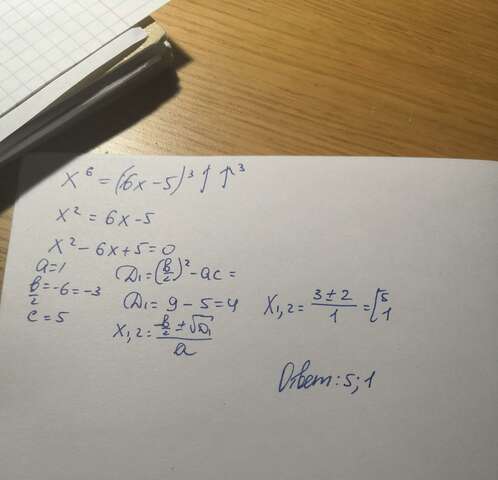 x⁶ = (6x-5)³ ↑ ↑³
x² = 6x-5
x²-6x+5=0
a=1
b/2=-6=-3
c=5
D₁=(b/2)²-ac=
D₁=9-5=4
x₁,₂=(-b/2±√D₁)/a
x₁,₂=(3±2)/1=[5 1
Ответ: 5; 1